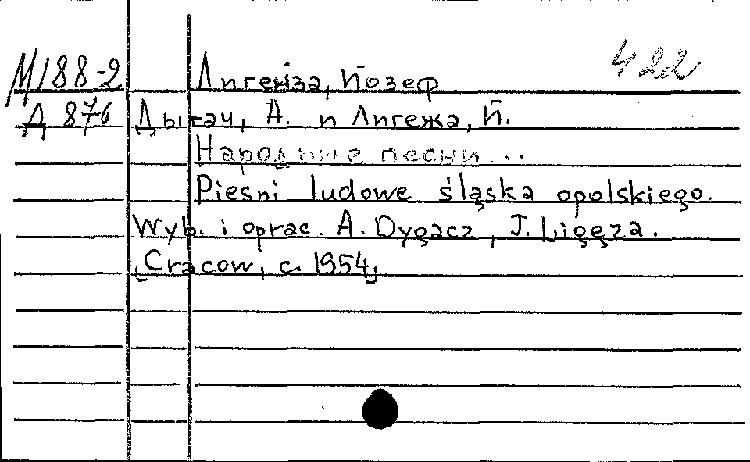 422
М188-2 Лигенза, Йозеф
Д 876 Дыгач, А. и Лигежа, Й.
Народные песни...
Pieśni ludowe śląska opolskiego.
Wyb. i oprac. A. Dygacz, J. Ligęza.
[Cracow, c. 1954]